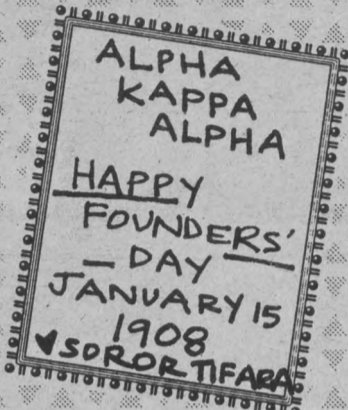 ALPHA
KAPPA
ALPHA
HAPPY
FOUNDERS'
DAY
JANUARY 15
1908
♥SOROR TIFARA